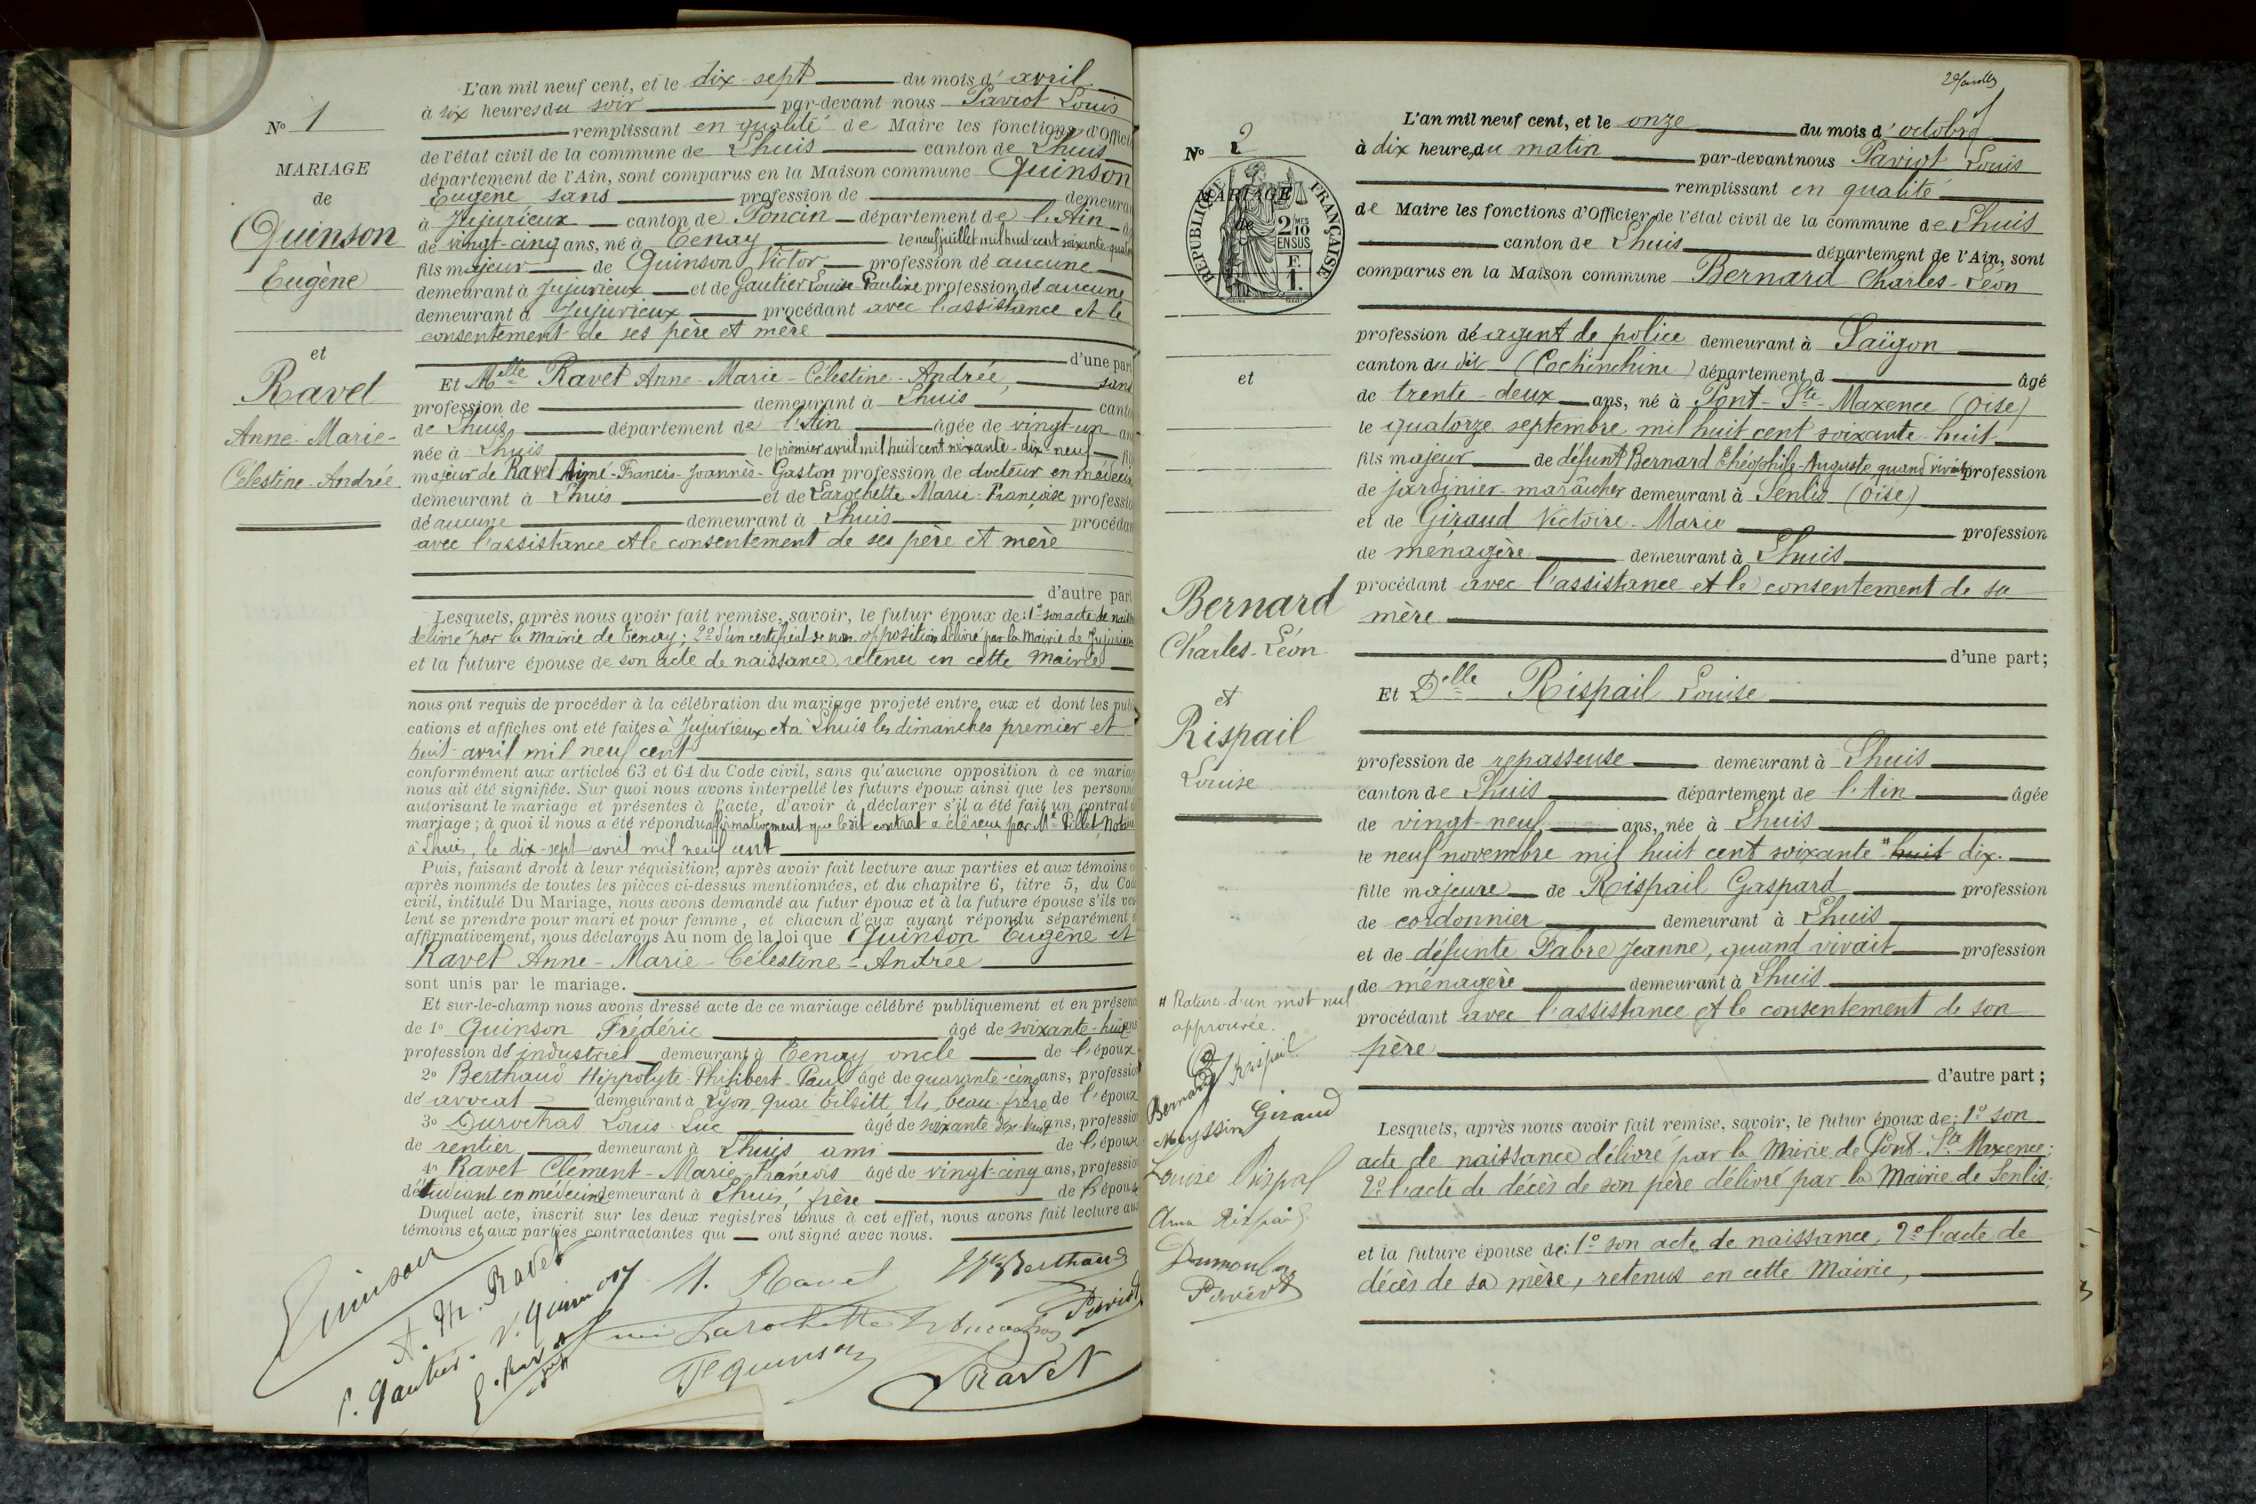 N° 1
MARIAGE
de
Quinson
Eugène
et
Ravet
Anne-Marie-
Célestine-Andrée
L'an mil neuf cent, et le dix-sept du mois d'avril
à six heures du soir par-devant nous Paviot Louis
remplissant en qualité de Maire les fonctions d'Officier
de l'état civil de la commune de Lhuis canton de Lhuis
département de l'Ain, sont comparus en la Maison commune Quinson
Eugène sans profession de demeurant
à Jujurieux canton de Poncin département de l'Ain
de vingt-cinq ans, né à Tenay le neuf juillet mil huit cent soixante-quatorze
fils majeur de Quinson Victor profession de aucune
demeurant à Jujurieux et de Gautier Louise-Pauline profession de aucune
demeurant à Jujurieux procédant avec l'assistance et le
consentement de ses père et mère
d'une part
Et Melle Ravet Anne-Marie-Célestine-Andrée, sans
profession de demeurant à Lhuis canton
de Lhuis département de l'Ain âgée de vingt-un ans
née à Lhuis le premier avril mil huit cent soixante-dix-neuf
majeur de Ravet Aimé-Francis-Joannès-Gaston profession de docteur en médecine
demeurant à Lhuis et de Larochette Marie-Françoise profession
de aucune demeurant à Lhuis procédant
avec l'assistance et le consentement de ses père et mère
d'autre part
Lesquels, après nous avoir fait remise, savoir, le futur époux de: 1° son acte de naissance
délivré par la Mairie de Tenay; 2° d'un certificat de non opposition délivré par la Mairie de Jujurieux
et la future épouse de son acte de naissance, retenu en cette Mairie
nous ont requis de procéder à la célébration du mariage projeté entre eux et dont les publi
cations et affiches ont été faites à Jujurieux et à Lhuis les dimanches premier et
huit avril mil neuf cent
conformément aux articles 63 et 64 du Code civil, sans qu'aucune opposition à ce mariage
nous ait été signifiée. Sur quoi nous avons interpellé les futurs époux ainsi que les personnes
autorisant le mariage et présentes à l'acte, d'avoir à déclarer s'il a été fait un contrat de
mariage; à quoi il nous a été répondu affirmativement que ledit contrat a été reçu par Me Pillet, Notaire
à Lhuis, le dix-sept avril mil neuf cent
Puis, faisant droit à leur réquisition, après avoir fait lecture aux parties et aux témoins ci
après nommés de toutes les pièces ci-dessus mentionnées, et du chapitre 6, titre 5, du Code
civil, intitulé Du Mariage, nous avons demandé au futur époux et à la future épouse s'ils veu
lent se prendre pour mari et pour femme, et chacun d'eux ayant répondu séparément et
affirmativement, nous déclarons Au nom de la loi que Quinson Eugène et
Ravet Anne-Marie-Célestine-Andrée
sont unis par le mariage.
Et sur-le-champ nous avons dressé acte de ce mariage célébré publiquement et en présence
de 1° Quinson Frédéric âgé de soixante-huit ans
profession de industriel demeurant à Tenay oncle de l'époux
2° Berthaud Hippolyte-Philibert-Paul âgé de quarante-cinq ans, profession
de avocat demeurant à Lyon, quai Tilsitt, 24, beau-frère de l'époux
3° Durochat Louis-Luc âgé de soixante-dix-huit ans, profession
de rentier demeurant à Lhuis ami de l'épouse
4° Ravet Clément-Marie-François âgé de vingt-cinq ans, profession
d'étudiant en médecine demeurant à Lhuis, frère de l'épouse
Duquel acte, inscrit sur les deux registres tenus à cet effet, nous avons fait lecture aux
témoins et aux parties contractantes qui ont signé avec nous.
Quinson
A. M. Ravet
M. Ravet
Berthaud
L. Gautier
V. Quinson
née Larochette
Paviot
Fc Quinson
Ravet
N° 2
MARIAGE
de
RÉPUBLIQUE FRANÇAISE
2/10 EN SUS
F.
1.
et
Bernard
Charles-Léon
et
Rispail
Louise
L'an mil neuf cent, et le onze du mois d'octobre
à dix heures du matin par-devant nous Paviot Louis
remplissant en qualité
de Maire les fonctions d'Officier de l'état civil de la commune de Lhuis
canton de Lhuis département de l'Ain, sont
comparus en la Maison commune Bernard Charles-Léon
profession de agent de police demeurant à Saïgon
canton du dit (Cochinchine) département d âgé
de trente-deux ans, né à Pont-Ste-Maxence (Oise)
le quatorze septembre mil huit cent soixante-huit
fils majeur de défunt Bernard Théophile-Auguste quand vivait profession
de jardinier-maraîcher demeurant à Senlis (Oise)
et de Giraud Victoire-Marie profession
de ménagère demeurant à Lhuis
procédant avec l'assistance et le consentement de sa
mère
d'une part;
Et Delle Rispail Louise
profession de repasseuse demeurant à Lhuis
canton de Lhuis département de l'Ain âgée
de vingt-neuf ans, née à Lhuis
le neuf novembre mil huit cent soixante " huit dix.
fille majeure de Rispail Gaspard profession
de cordonnier demeurant à Lhuis
et de défunte Fabre Jeanne, quand vivait profession
de ménagère demeurant à Lhuis
procédant avec l'assistance et le consentement de son
père
d'autre part;
Lesquels, après nous avoir fait remise, savoir, le futur époux de: 1° son
acte de naissance délivré par la Mairie de Pont-Ste-Maxence;
2° l'acte de décès de son père délivré par la Mairie de Senlis;
et la future épouse de: 1° son acte de naissance, 2° l'acte de
décès de sa mère, retenus en cette Mairie,
" Rature d'un mot nul
approuvée.
Bernard
Rispail
Meyssin
Giraud
Louise Rispal
Anna Rispail
Dumoulin
Paviot